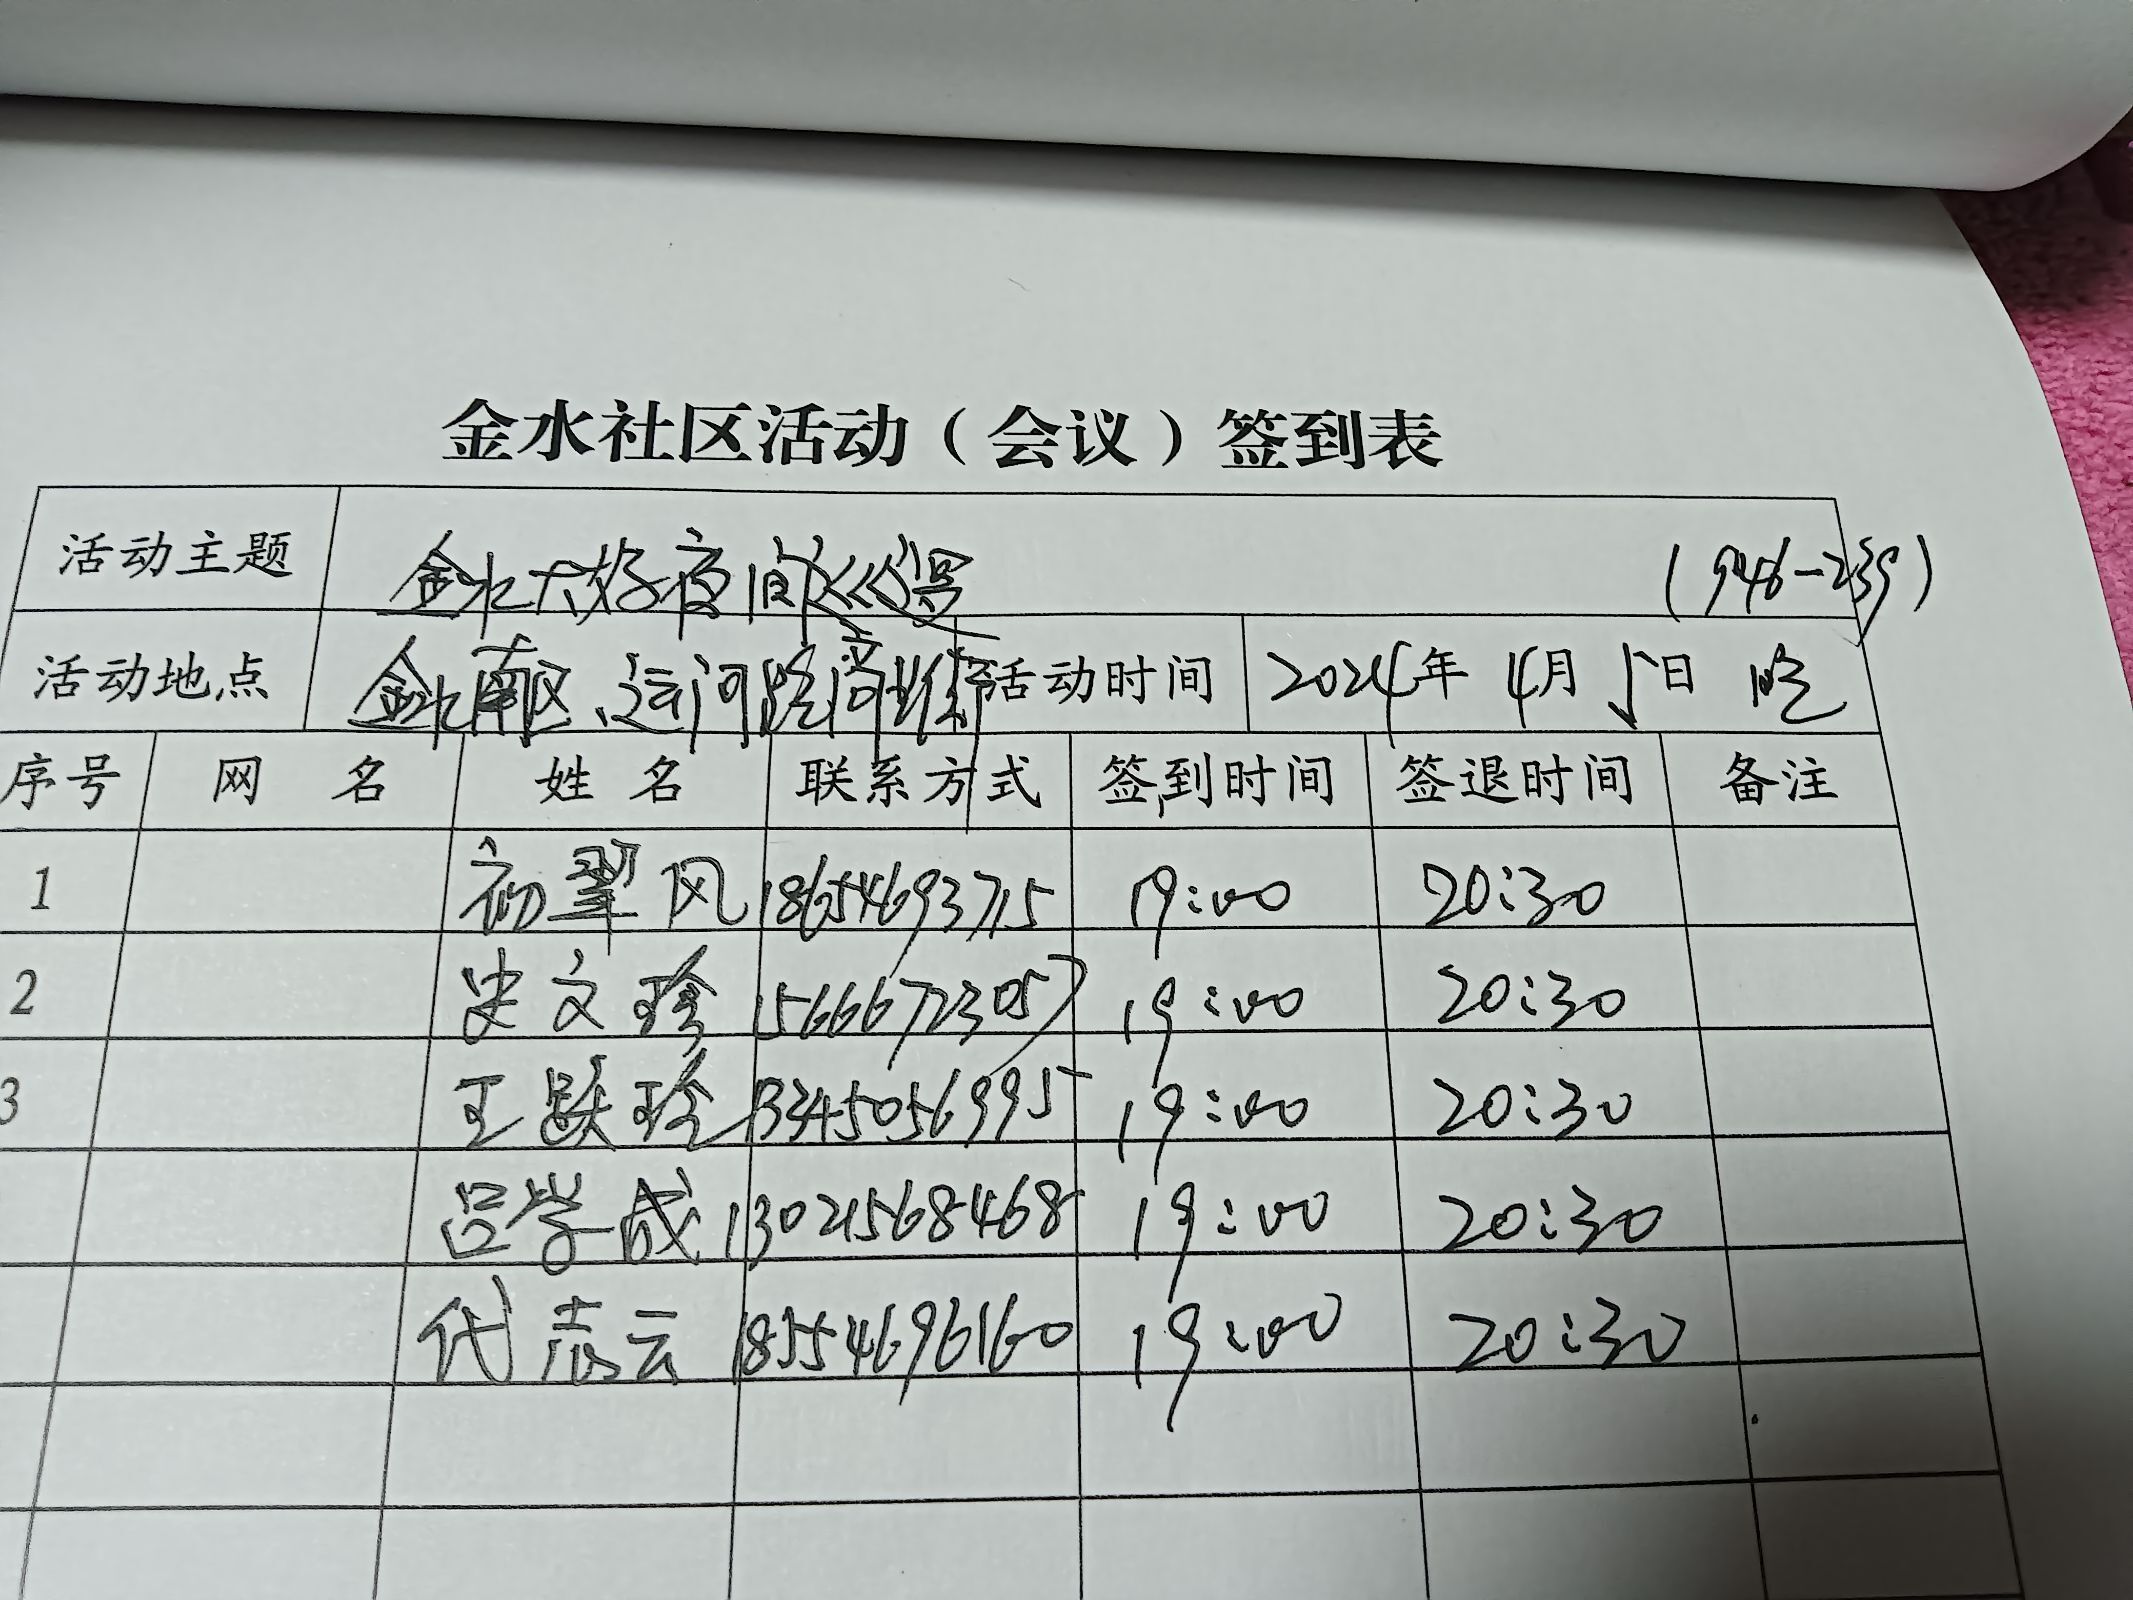 金水社区活动（会议）签到表
活动主题 金水大好夜间巡逻 (946-239)
活动地点 金水南区、运河路商 活动时间 2024年 4月 5日 晚
序号 网 名 姓 名 联系方式 签到时间 签退时间 备注
1 初翠风 18654693715 19:00 20:30
2 史文珍 15666723057 19:00 20:30
3 王跃珍 13345056995 19:00 20:30
吕学成 13021568468 19:00 20:30
代志云 18554696160 19:00 20:30